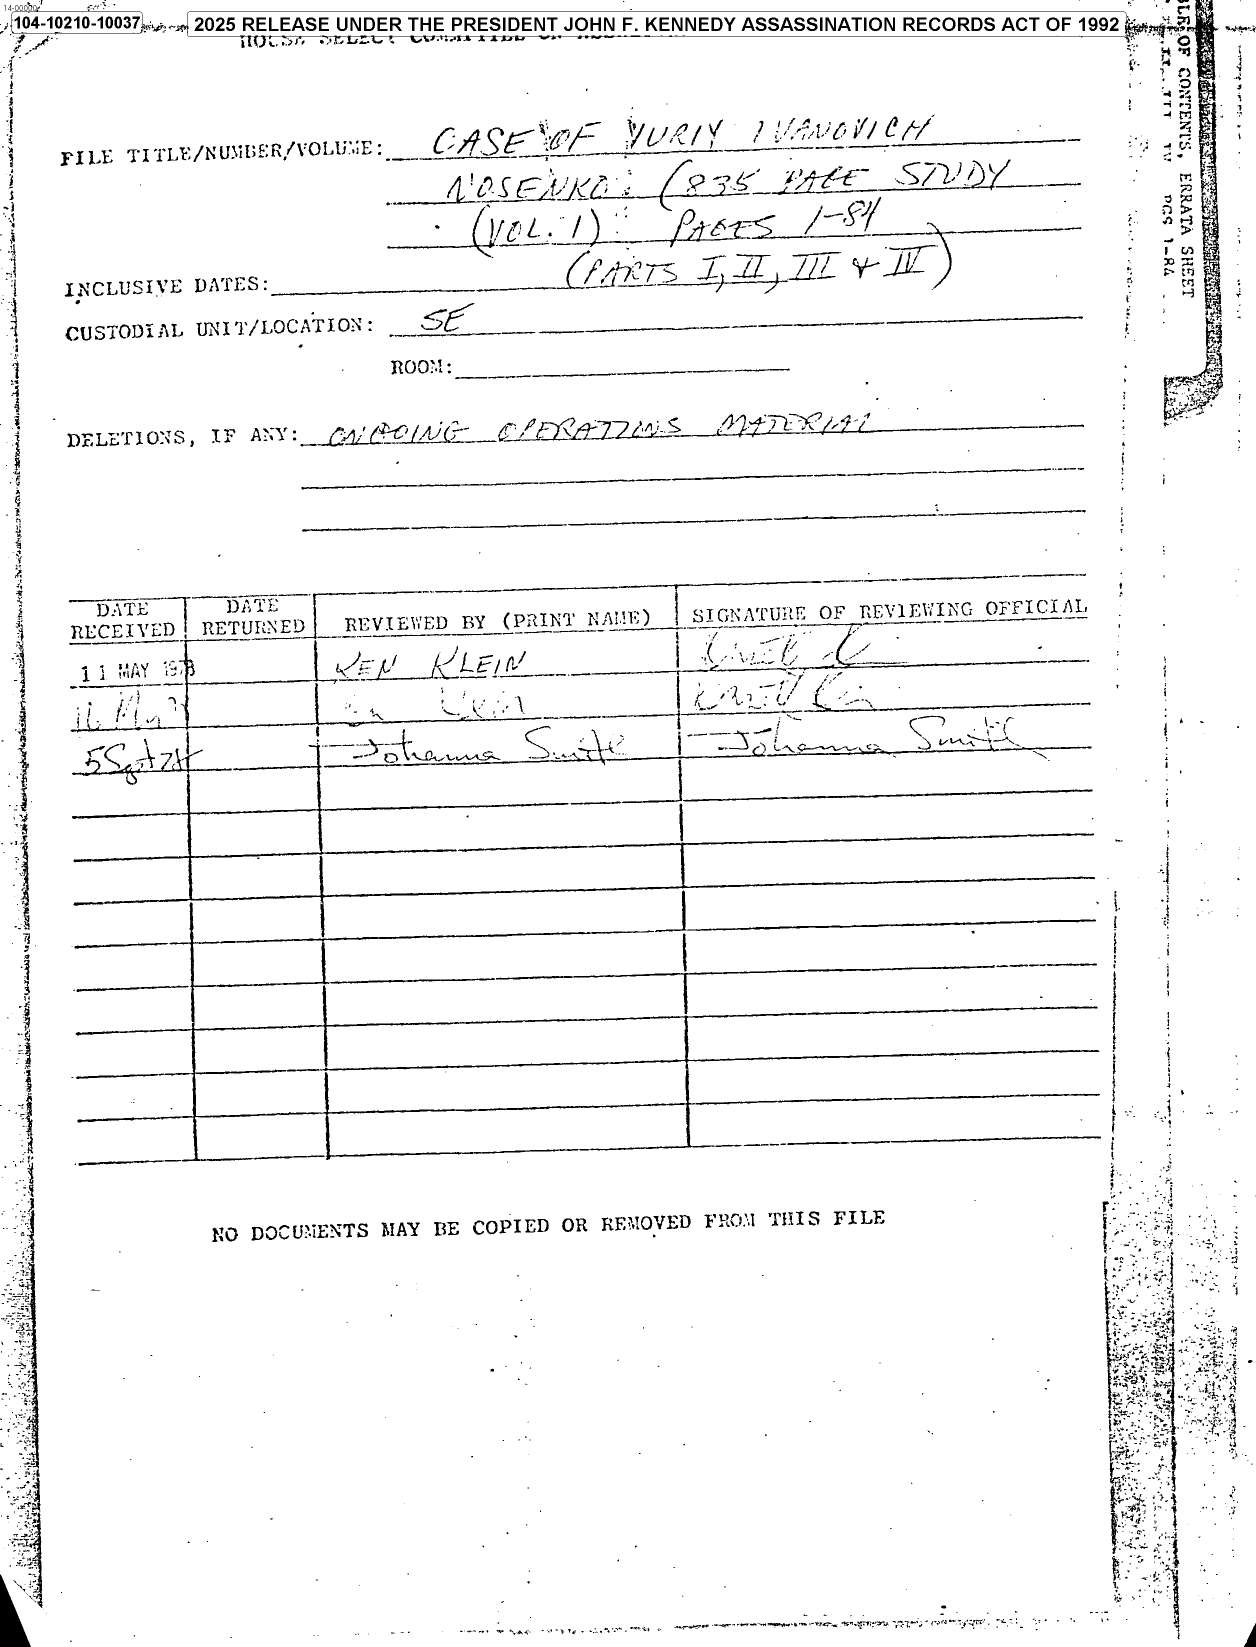 14-00000
104-10210-10037
2025 RELEASE UNDER THE PRESIDENT JOHN F. KENNEDY ASSASSINATION RECORDS ACT OF 1992
HOUSE SELECT COMMITTEE ON
FILE TITLE/NUMBER/VOLUME: CASE OF YURIY IVANOVICH
NOSENKO: (835 PAGE STUDY
(VOL. 1) PAGES 1-84
(PARTS I, II, III & IV)
INCLUSIVE DATES:
CUSTODIAL UNIT/LOCATION: SE
ROOM:
DELETIONS, IF ANY: ONGOING OPERATIONS MATERIAL
DATE RECEIVED DATE RETURNED REVIEWED BY (PRINT NAME) SIGNATURE OF REVIEWING OFFICIAL
11 MAY 1978 KEN KLEIN
16 May
5 Sept 78 Johanna Smith Johanna Smith
NO DOCUMENTS MAY BE COPIED OR REMOVED FROM THIS FILE
OF CONTENTS, ERRATA SHEET
III IV PGS 1-84